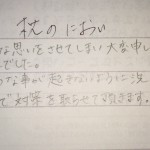 枕のにおい
な思いをさせてしまい大変申し
でした。
うな事が起きないように洗
で対策を取らせて頂きます。